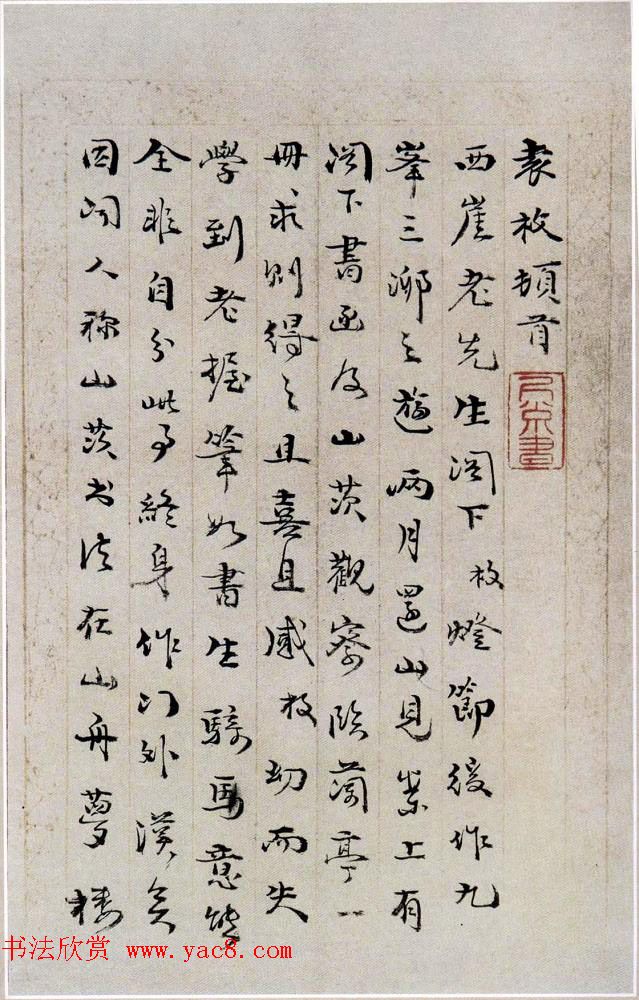 袁枚頓首
西崖老先生閣下枚燈節後作九
峯三泖之遊兩月還山見案上有
閣下書函及山茨觀察臨蘭亭一
冊求則得之且喜且感枚幼而失
學到老握筆如書生騎馬意態
全非自分此事終身作门外漢矣
因问人称山茨书法在山舟夢樓
书法欣赏 www.yac8.com